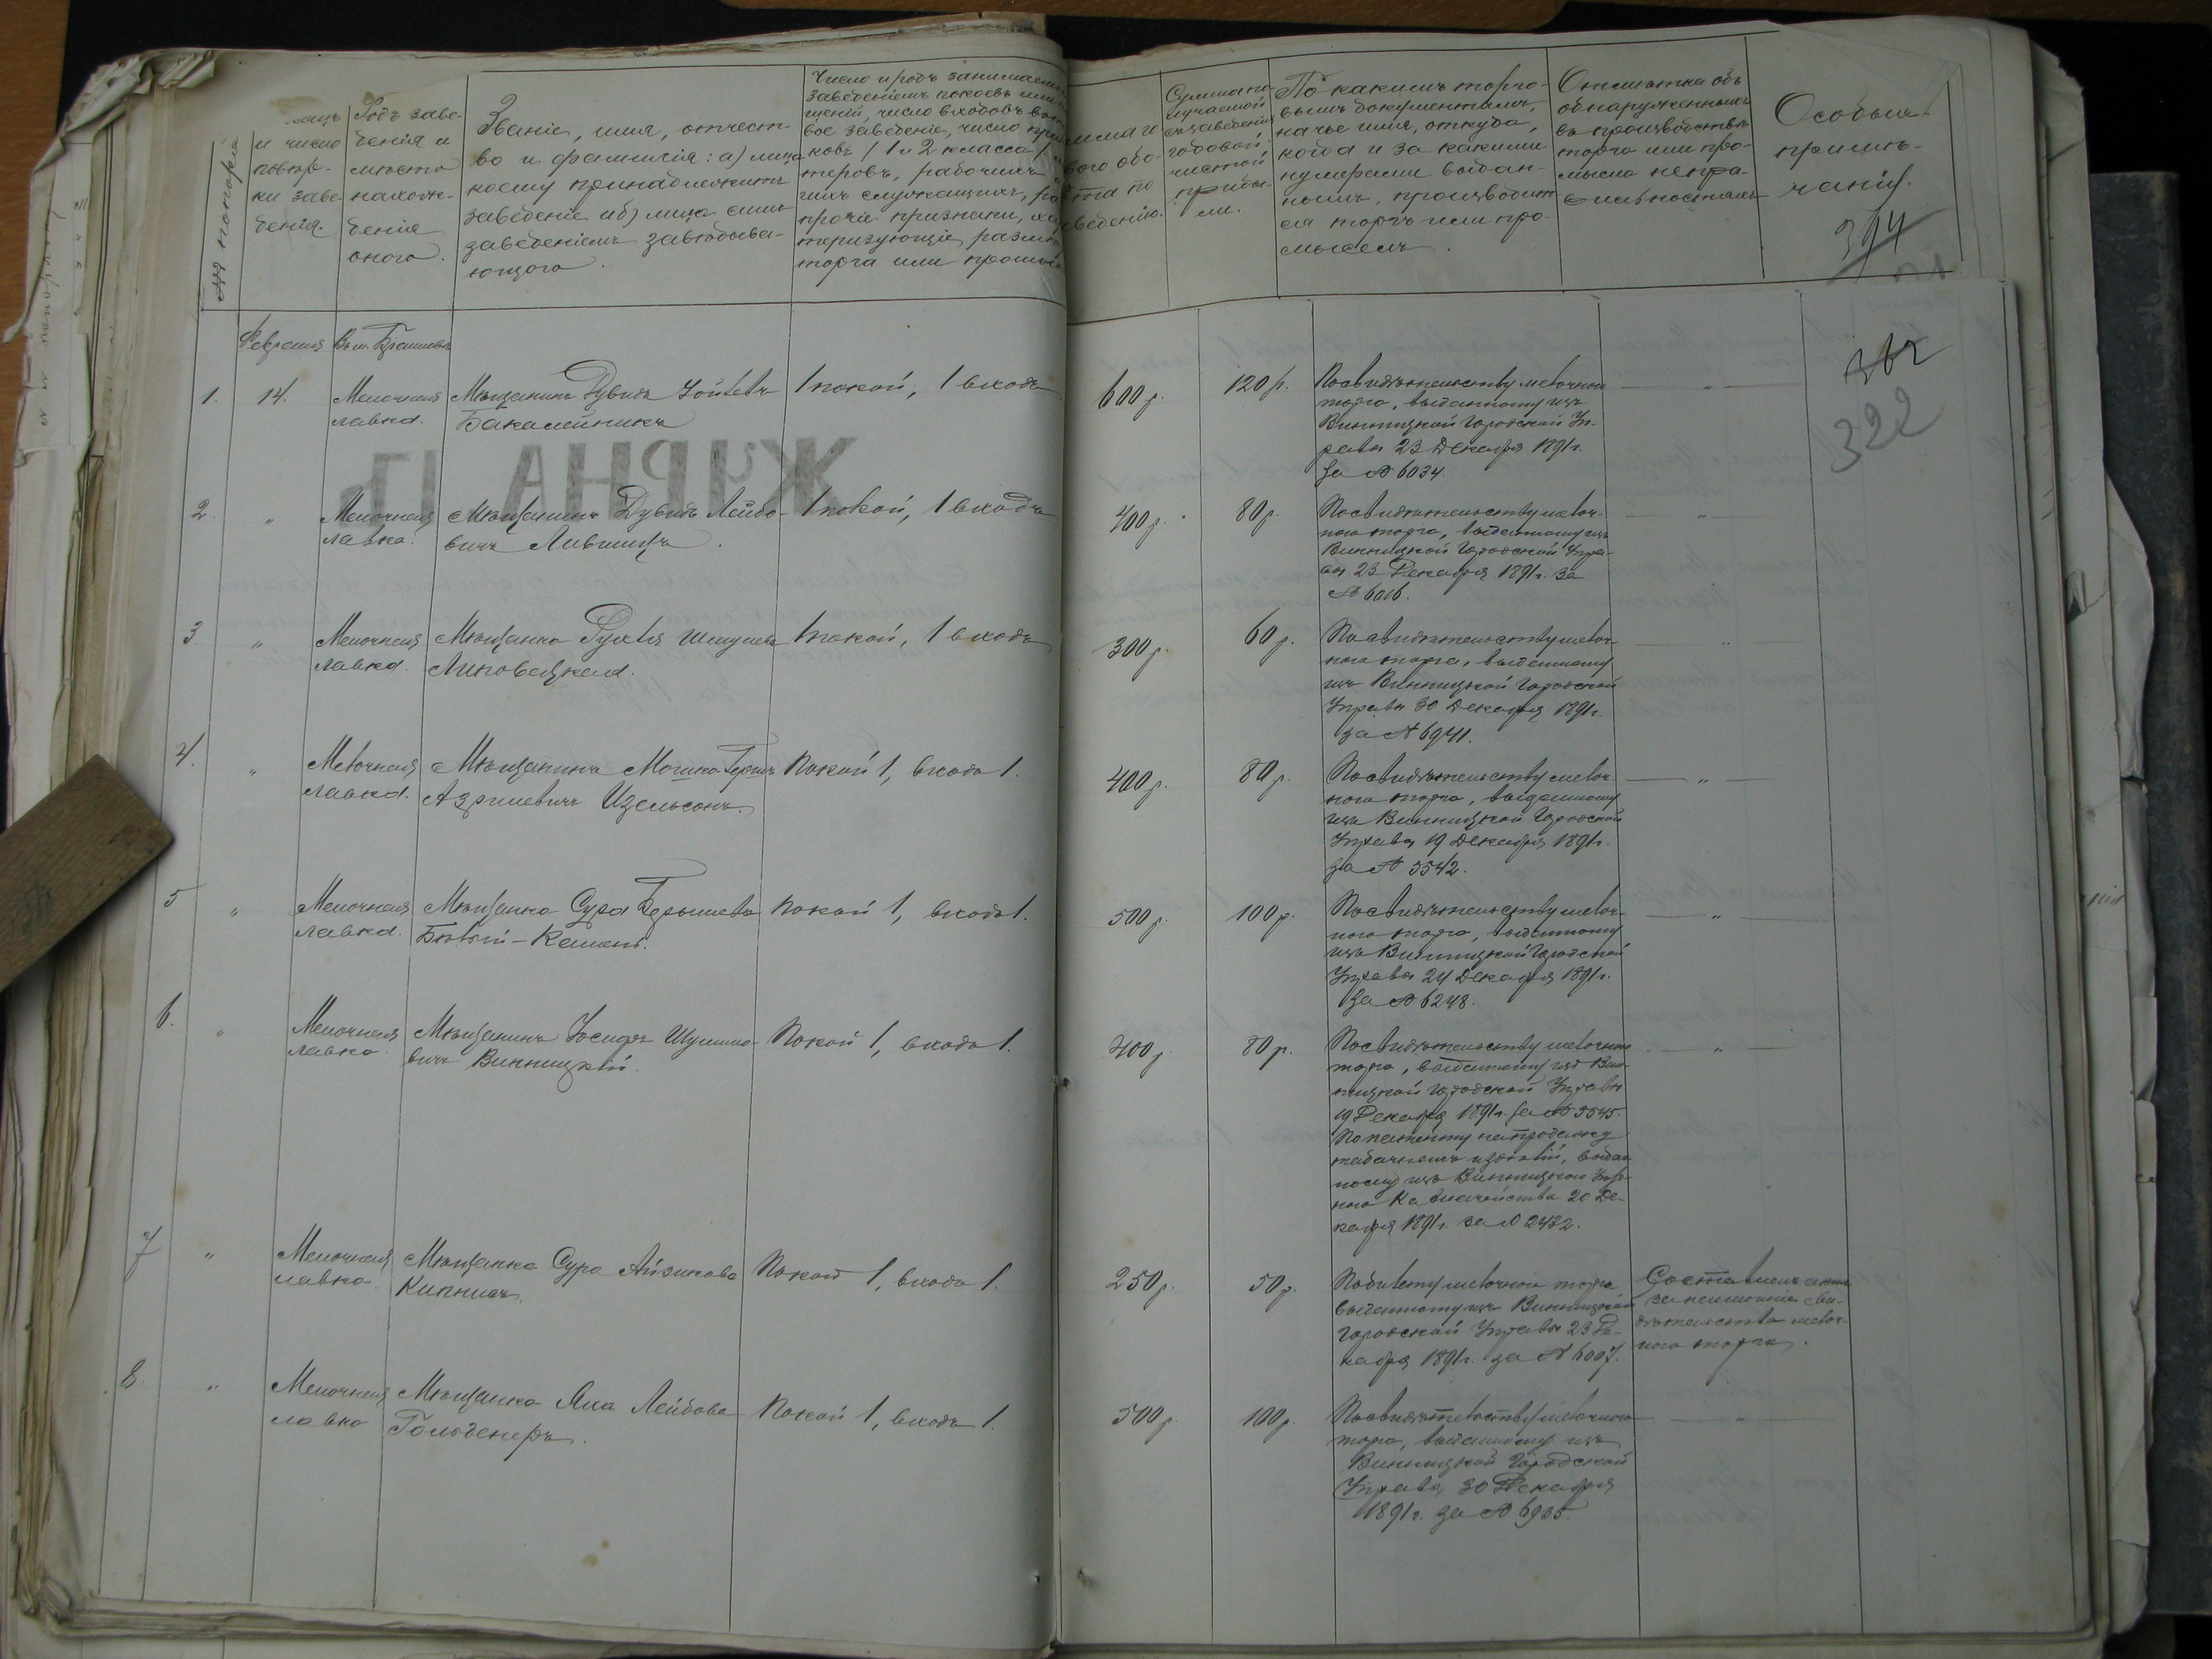 №№ по порядку
и число
повѣр-
ки заве-
денія.
Родъ заве-
денія и
мѣсто
нахож-
денія
онаго.
Званіе, имя, отчест-
во и фамилія: а) лица
коему принадлежитъ
заведеніе и б) лица симъ
заведеніемъ завѣдыва-
ющаго.
Число и родъ занимаем
заведеніемъ покоевъ или
щеній, число входовъ въ
вое заведеніе, число
ковъ (1 и 2 класса)
теровъ, рабочихъ
гихъ служащихъ,
прочіе признаки,
теризующіе размѣ
торга или промы
вого обо-
та по
веденію.
Сумма по-
лучаемой
заведенія
годовой
чистой
прибы-
ли.
По какимъ торго-
вымъ документамъ,
на чье имя, откуда,
когда и за какими
нумерами выдан-
нымъ, производит
ся торгъ или про-
мыселъ.
Отмѣтка объ
обнаруженныхъ
въ производствѣ
торга или про-
мысла непра-
вильностяхъ
Особыя
примѣ-
чанія.
394
Февраля
Въ м. Браиловѣ
362
322
1.
14.
Мелочная
лавка.
Мѣщанинъ Дувидъ
Бакалейникъ
1 покой, 1 входъ
600 р.
120 р.
По свидѣтельству мелочнаго
торга, выданному изъ
Винницкой Городской Уп-
равы 23 Декабря 1891 г.
за № 6034.
"
2.
"
Мелочная
лавка.
Мѣщанинъ Дувидъ Лейбо-
вичъ Лившицъ.
1 покой, 1 входъ
400 р.
80 р.
По свидѣтельству мелоч-
ного торга, выданному изъ
Винницкой Городской Упра-
вы 23 Декабря 1891 г. за
№ 6016.
"
3.
"
Мелочная
лавка.
Мѣщанка Рухля Шмулева
Липовецкая.
1 покой, 1 входъ
300 р.
60 р.
По свидѣтельству мелоч-
ного торга, выданному
изъ Винницкой Городской
Управы 30 Декабря 1891 г.
за № 6941.
"
4.
"
Мелочная
лавка.
Мѣщанинъ Мошко Гершъ
Азрилевичъ Ицельсонъ.
Покой 1, входъ 1.
400 р.
80 р.
По свидѣтельству мелоч-
ного торга, выданному
изъ Винницкой Городской
Управы 19 Декабря 1891 г.
за № 5542.
"
5
"
Мелочная
лавка.
Мѣщанка Сура Берышева
Бѣлый-Камень.
Покой 1, входъ 1.
500 р.
100 р.
По свидѣтельству мелоч-
ного торга, выданному
изъ Винницкой Городской
Управы 24 Декабря 1891 г.
за № 6248.
"
6.
"
Мелочная
лавка
Мѣщанинъ Іосифъ Шулимо-
вичъ Винницкій.
Покой 1, входъ 1.
400 р.
80 р.
По свидѣтельству мелочного
торга, выданному изъ Вин-
ницкой Городской Управы
19 Декабря 1891 г. за № 5545.
По патенту на продажу
табачныхъ издѣлій, выдан
ному изъ Винницкаго Уѣзд-
ного Казначейства 20 Де-
кабря 1891 г. за № 2432.
"
7
"
Мелочная
лавка.
Мѣщанка Сура Айзикова
Кипнисъ.
Покой 1, входъ 1.
250 р.
50 р.
По билету мелочного торга
выданному изъ Винницкой
Городской Управы 23 Де-
кабря 1891 г. за № 6007.
Составленъ актъ
за неимѣніе сви-
дѣтельства мелоч-
ного торга.
8.
"
Мелочная
лавка
Мѣщанка Хая Лейбова
Гольденеръ.
Покой 1, входъ 1.
500 р.
100 р.
По свидѣтельству мелочного
торга, выданному изъ
Винницкой Городской
Управы 30 Декабря
1891 г. за № 6935.
"